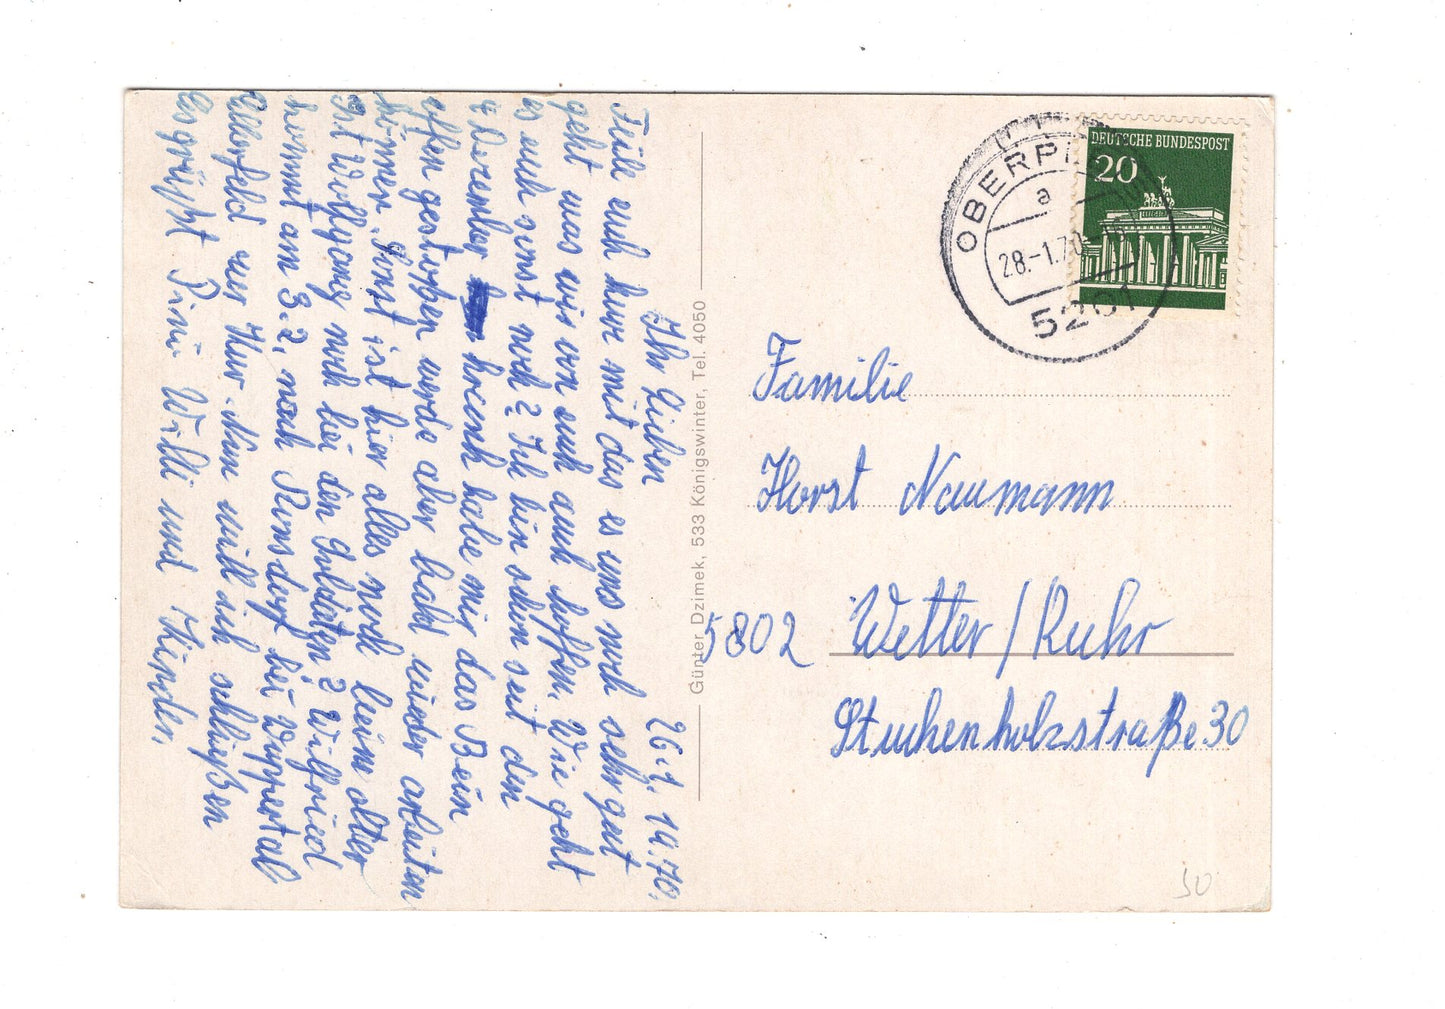 26.1.1970,
Ihr Lieben
Teile euch kurz mit das es uns noch sehr gut
geht was wir von euch auch hoffen. Wie geht
es euch sonst noch? Ich bin schon seit den
Dezember krank habe mir das Bein
offen gestoßen werde aber bald wieder arbeiten
können. Sonst ist hier alles noch beim alten
Ist Wolfgang noch bei den Soldaten? Wilfried
kommt am 3.2. nach Ronsdorf bei Wuppertal
Elberfeld zur Kur. Nun will ich schließen
Es grüßt Willi und Kinder.
Günter Dzimek, 533 Königswinter, Tel. 4050
DEUTSCHE BUNDESPOST
20
a
28.-1.70
Familie
Horst Naumann
5802 Wetter/Ruhr
Stuchenholzstraße 30
30